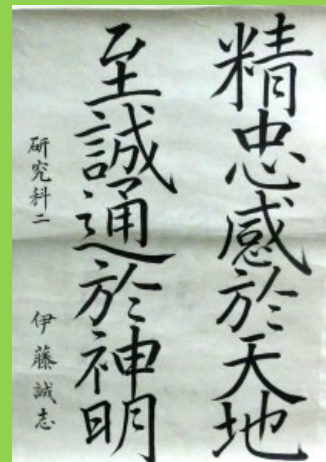 精忠感於天地
至誠通於神明
研究科二 伊藤誠志